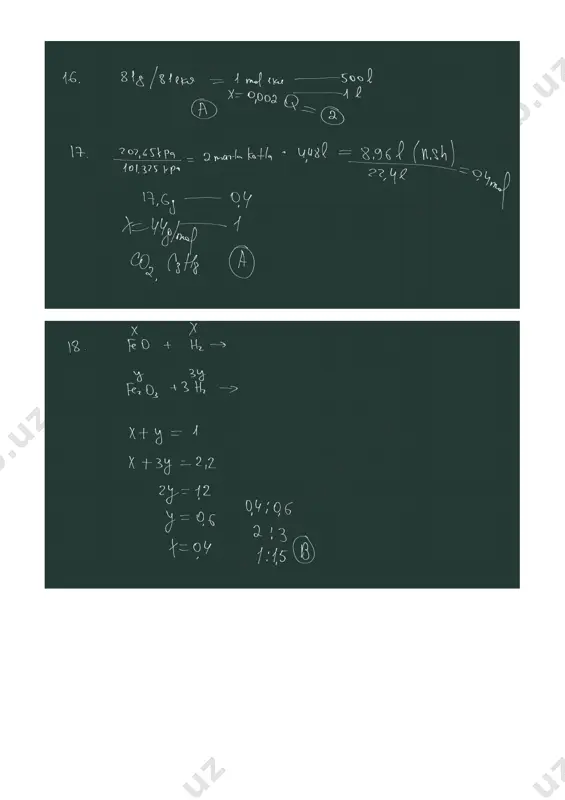 16. 81g/81ekv = 1 mol ekv — 500 l
x = 0,002 — 1 l
A Q = 2
17. 202,65 kPa / 101,325 kPa = 2 marta katta · 4,48 l = 8,96 l (n.sh) / 22,4 l = 0,4 mol
17,6g — 0,4
x = 44g/mol — 1
CO2, C3H8 A
18 x x
FeO + H2 →
y 3y
Fe2O3 + 3H2 →
x + y = 1
x + 3y = 2,2
2y = 1,2
y = 0,6 0,4 : 0,6
x = 0,4 2 : 3
1 : 1,5 B
.uz
.uz
uz
uz